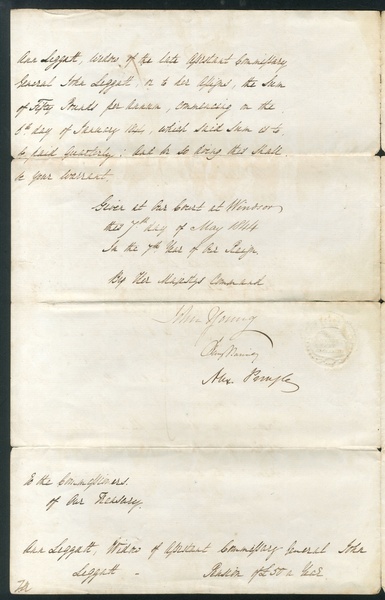 Ann Leggatt, Widow of the late Assistant Commissary
General John Leggatt, or to her Assigns, the Sum
of Fifty Pounds per Annum, commencing on the
6th day of January, which said Sum is to
be paid Quarterly; And for so doing this shall
be your Warrant
Given at Our Court at Windsor
this 7th day of May 1844
In the 7th Year of Our Reign
By Her Majesty's Command
John Young
Alex Pringle
To the Commissioners
of Our Treasury.
Ann Leggatt, Widow of Assistant Commissary General John
Leggatt - Pension of £50 a Year